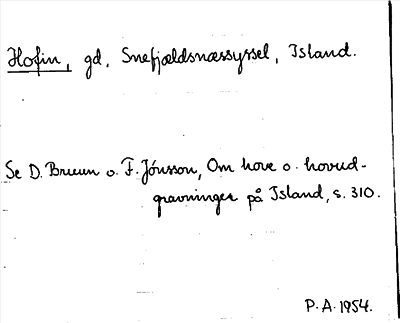 Hofin, gd, Snefjældsnæssyssel, Island.
Se D. Bruun o. F. Jónsson, Om hove o. hovud-
gravninger på Island, s. 310.
P. A. 1954.